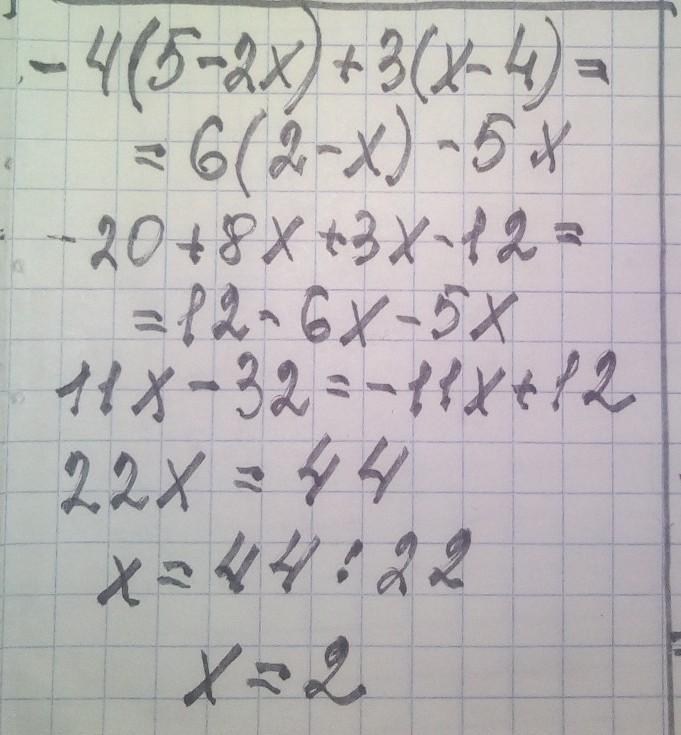 -4(5-2x)+3(x-4)=
=6(2-x)-5x
-20+8x+3x-12=
=12-6x-5x
11x-32=-11x+12
22x=44
x=44:22
x=2